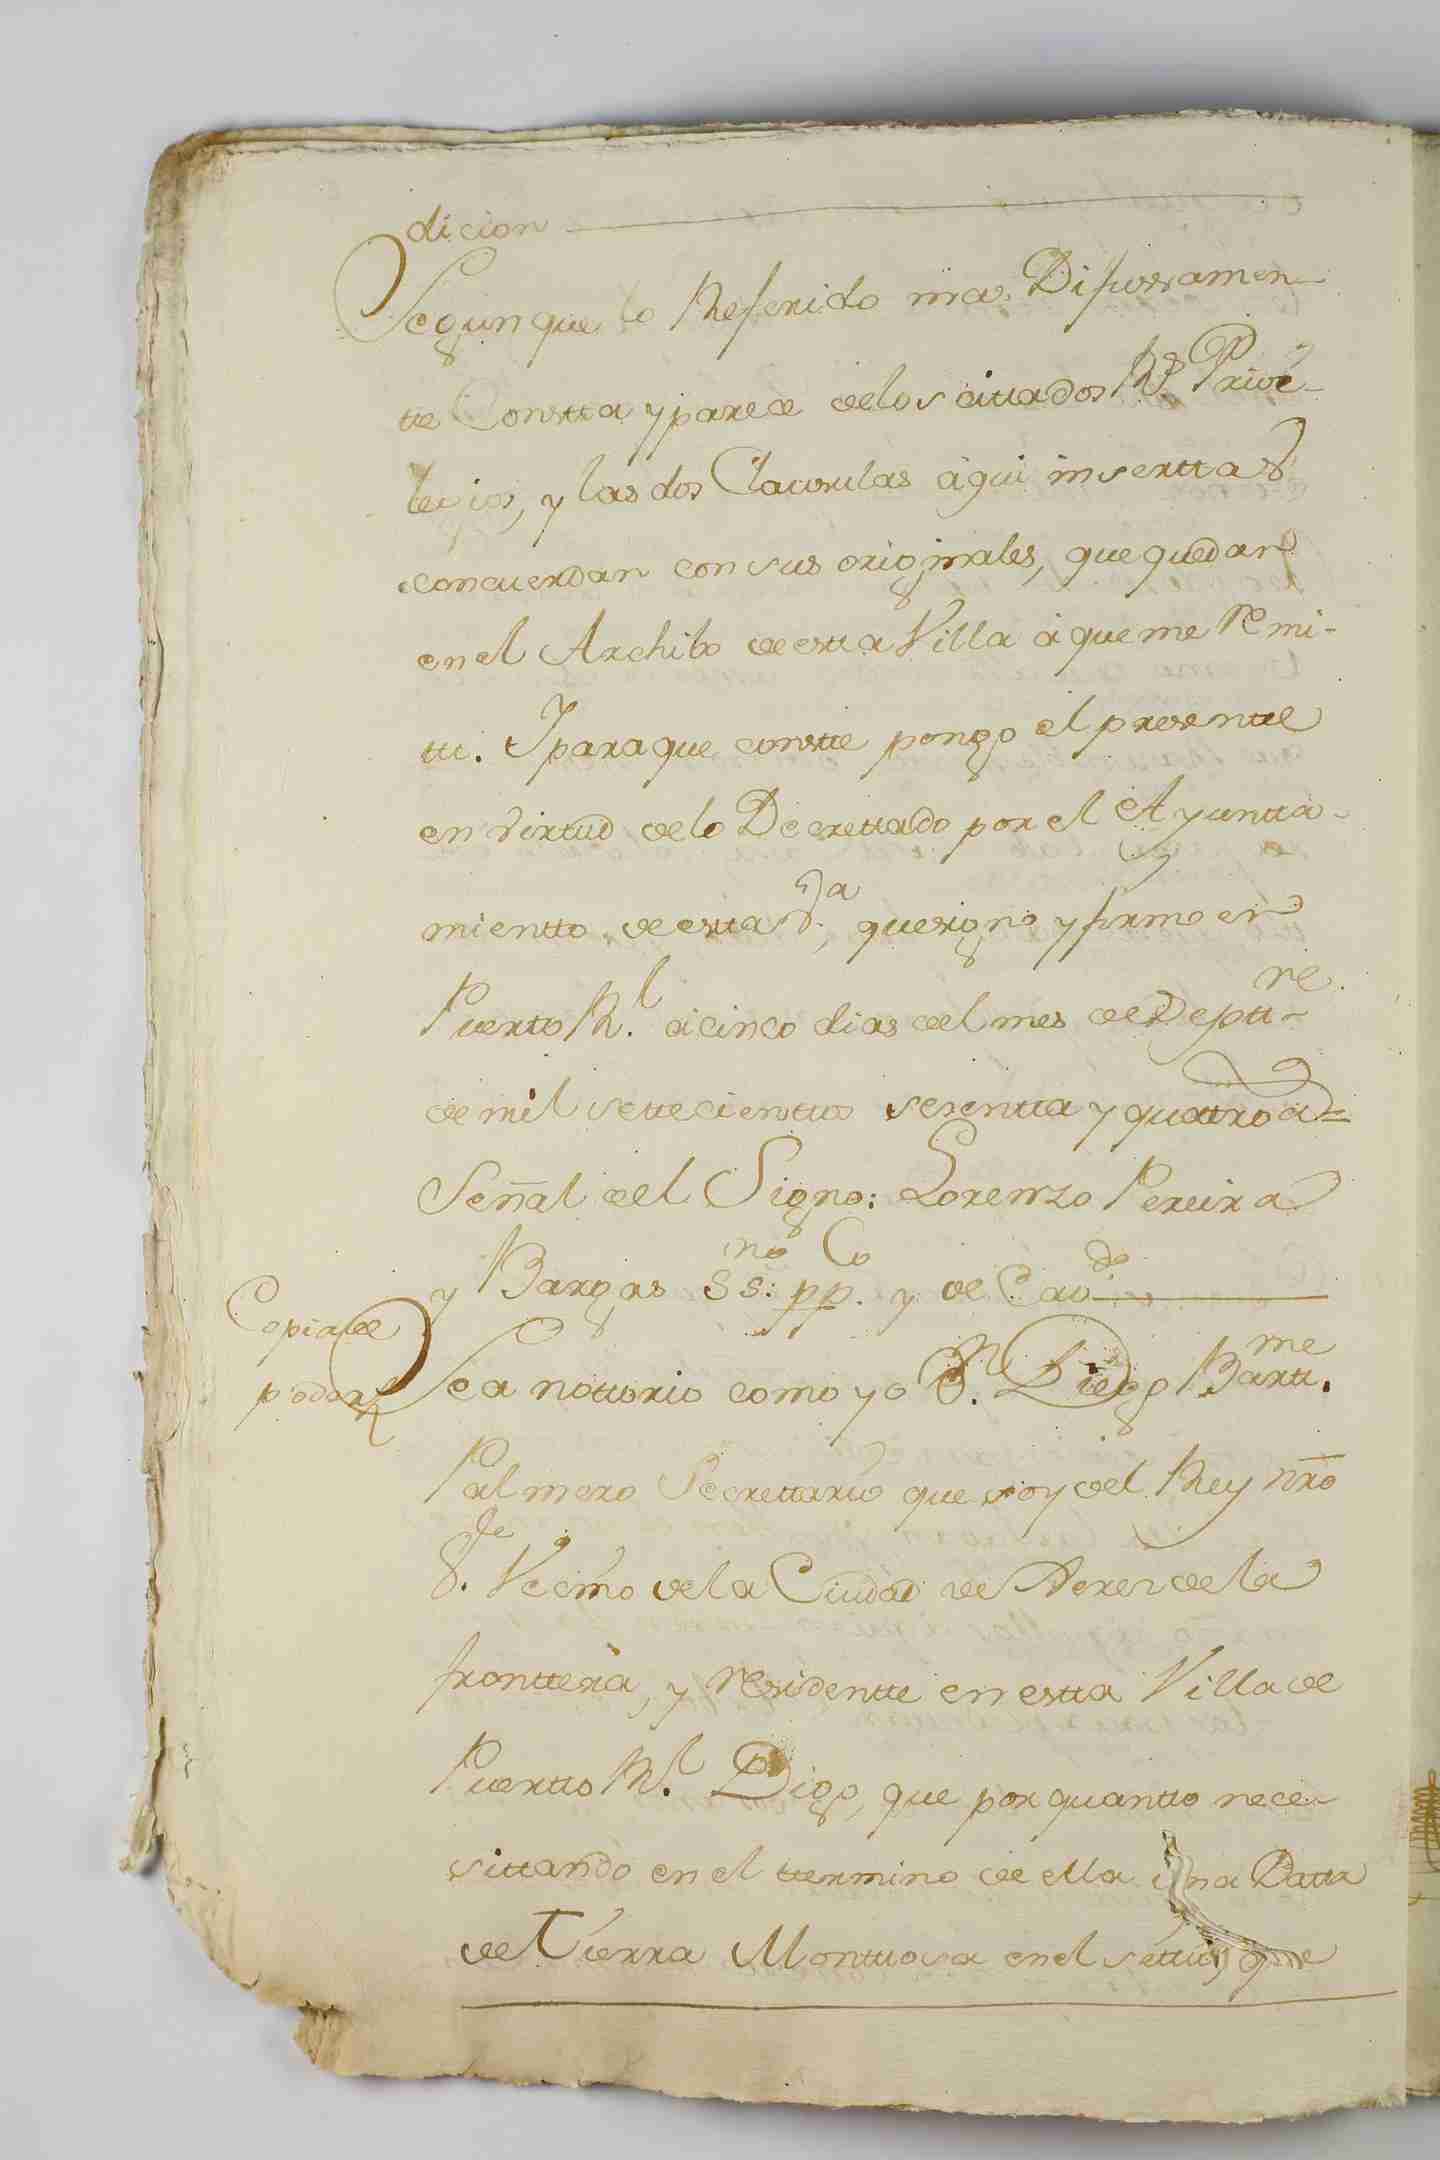 dicion
Segun que lo Referido mas Difussamen-
tte Constta y parece de los cittados Rs. Privi-
legios, y las dos Clausulas aqui inserttas
concuerdan con sus originales, que quedan
en el Archibo de estta Villa â que me remi-
tti. Y para que constte pongo el presentte
en virtud de lo Decrettado por el Ayuntta-
mientto de estta Va., que signo y firmo en
Puertto Rl. â cinco dias del mes de Septtre.
de mil settecienttos sesentta y quatro as=
Señal del Signo: Lorenzo Pereira
y Bargas SSno. ppco. y de Cavdo.
Copia de
poder
Sea nottorio como yo Dn. Diego Barttme.
Palmero Secrettario que soy del Rey nro
Se. Vecino de la Ciudad de Xerez de la
fronttera, y residentte en estta Villa de
Puertto Rl. Digo, que por quantto nece-
sittando en el ttermino de ella una Datta
de Tierra Monttuosa en el sittio, que